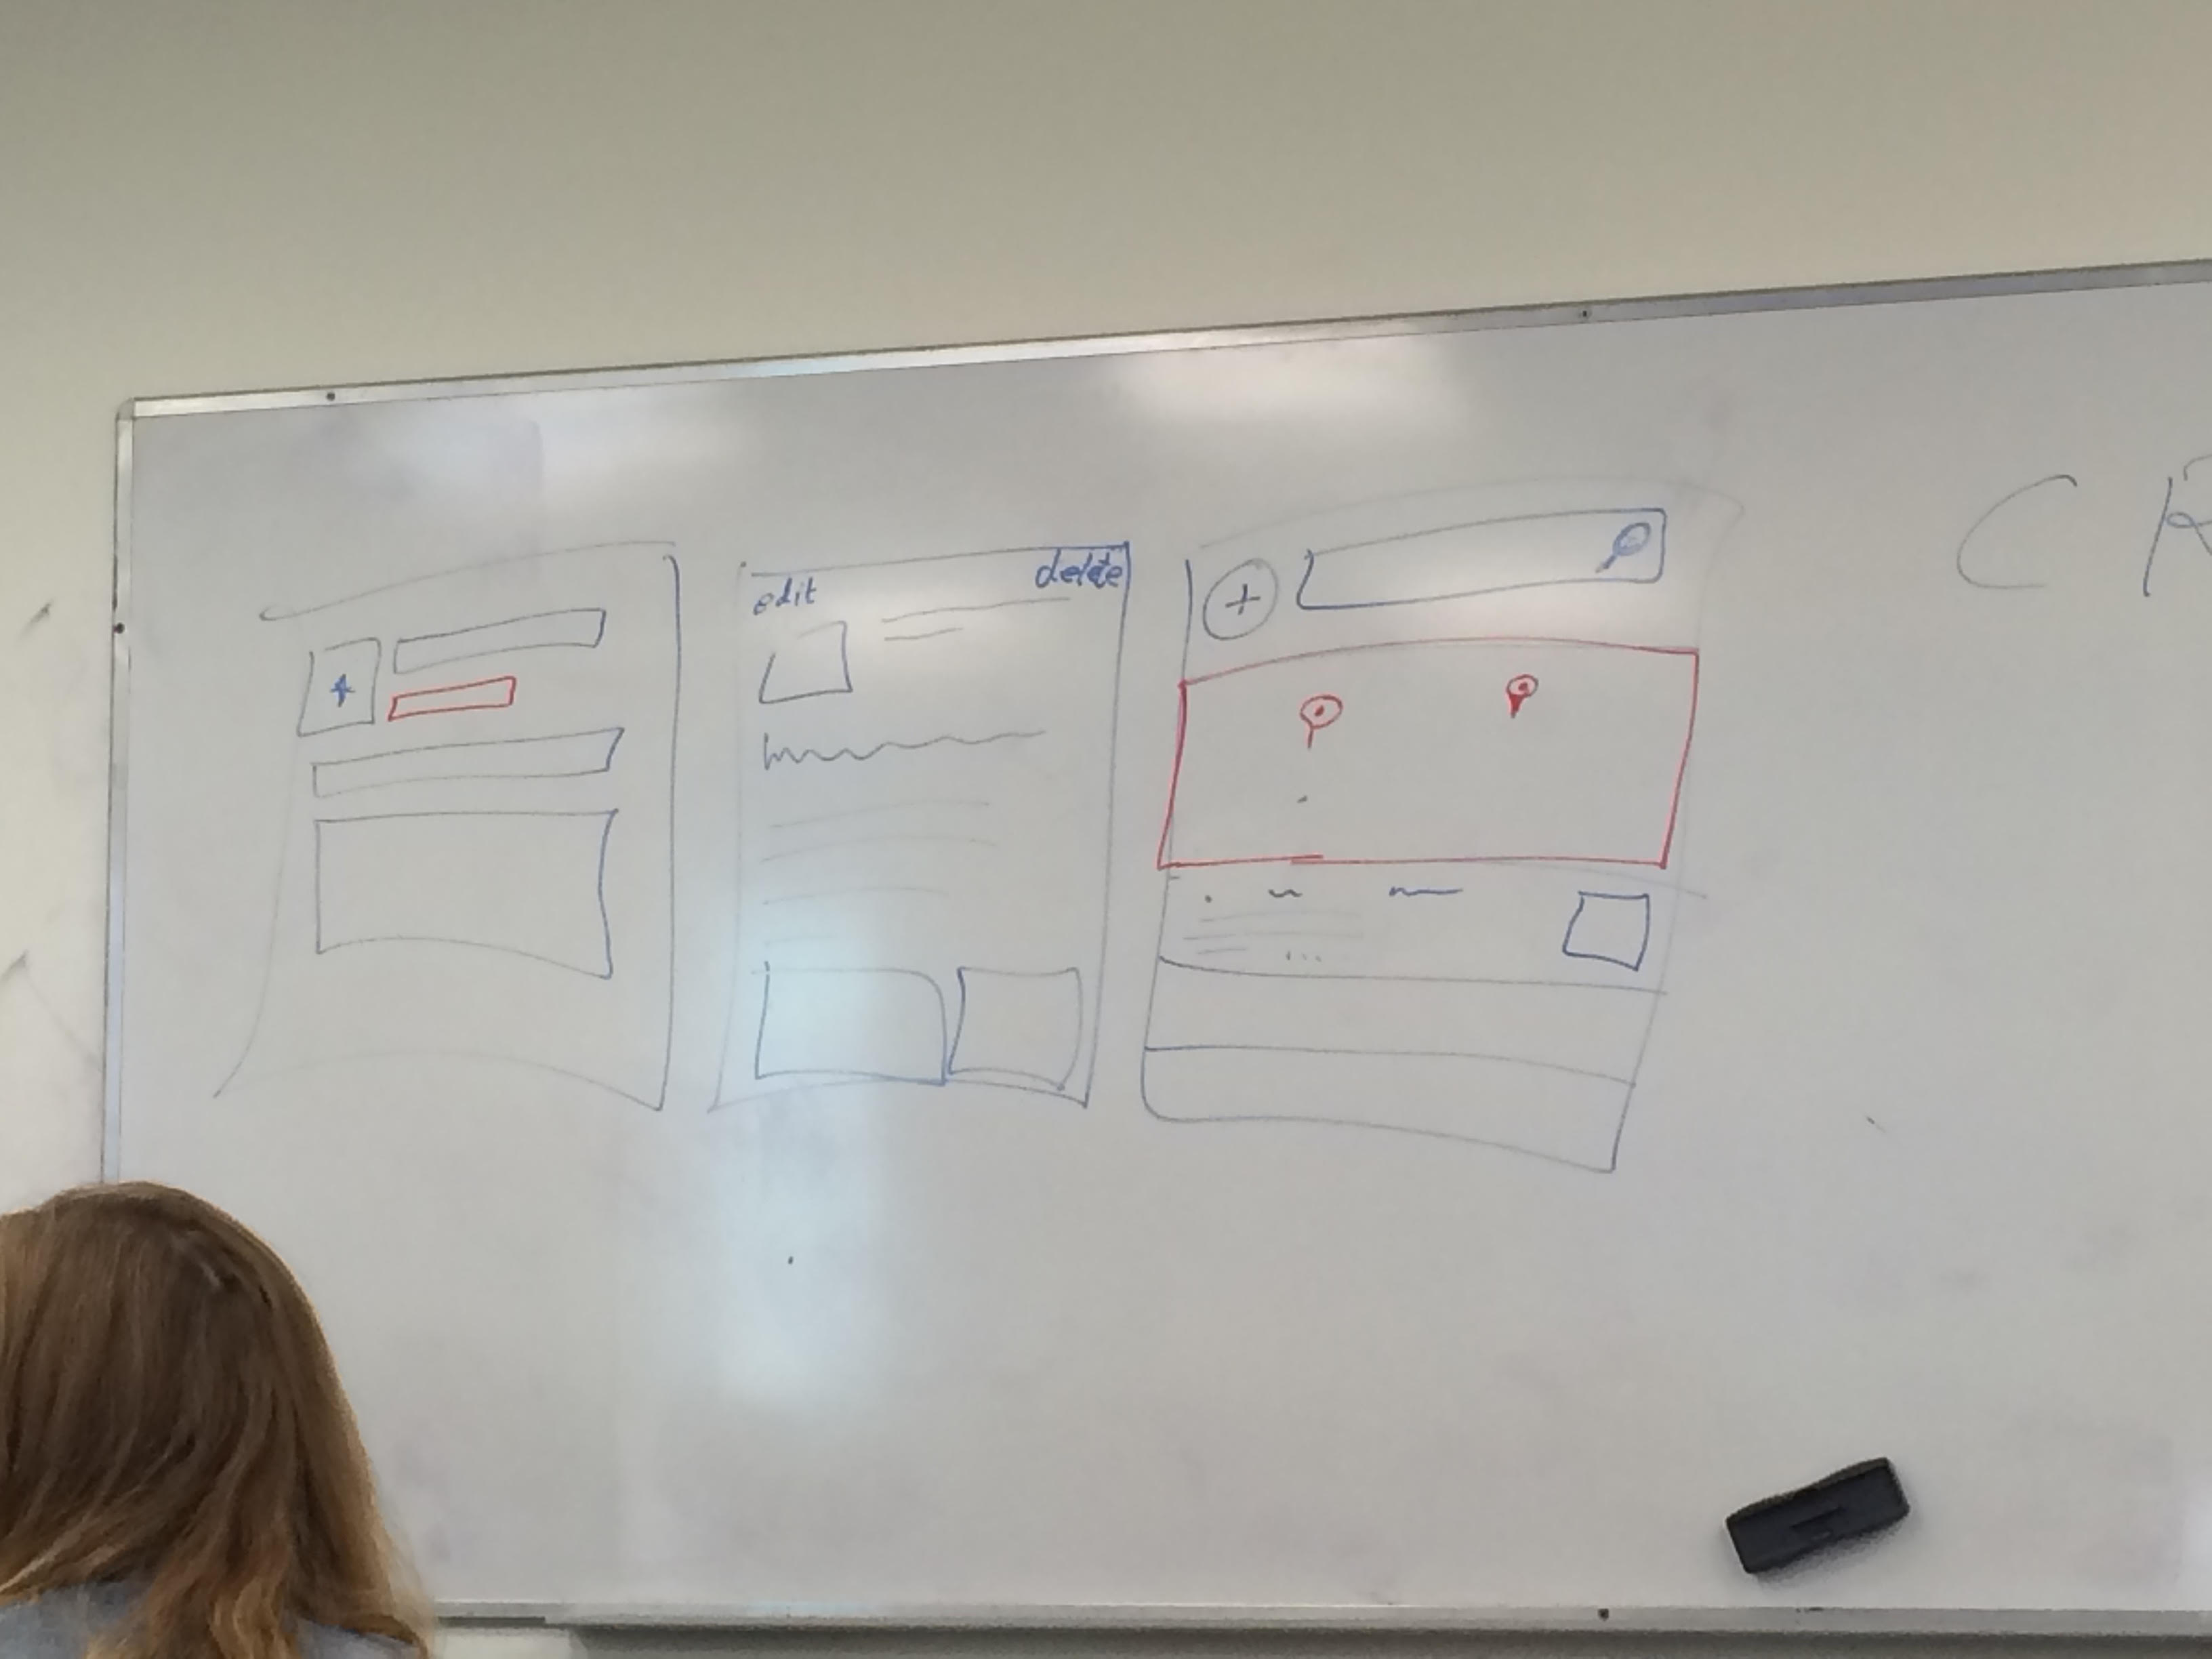 edit
delete
C R